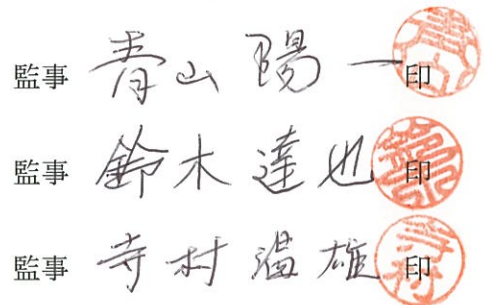 監事 青山 陽一 印
監事 鈴木 達也 印
監事 寺村 温雄 印